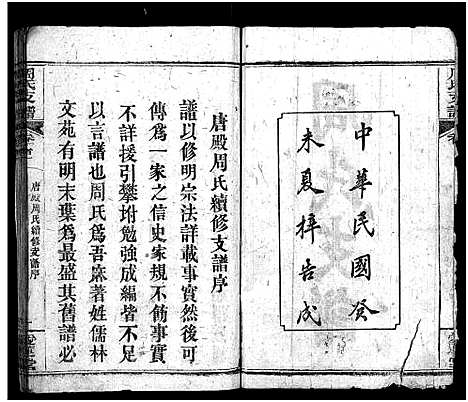 中華民國癸
未夏梓告成
唐殿周氏續修支譜序
譜以修明宗法詳載事實然後可
傳爲一家之信史家規不飭事實
不詳援引攀坿勉強成編皆不足
以言譜也周氏爲吾麻著姓儒林
文苑有明末葉爲最盛其舊譜必
周氏支譜
唐殿周氏續修支譜序